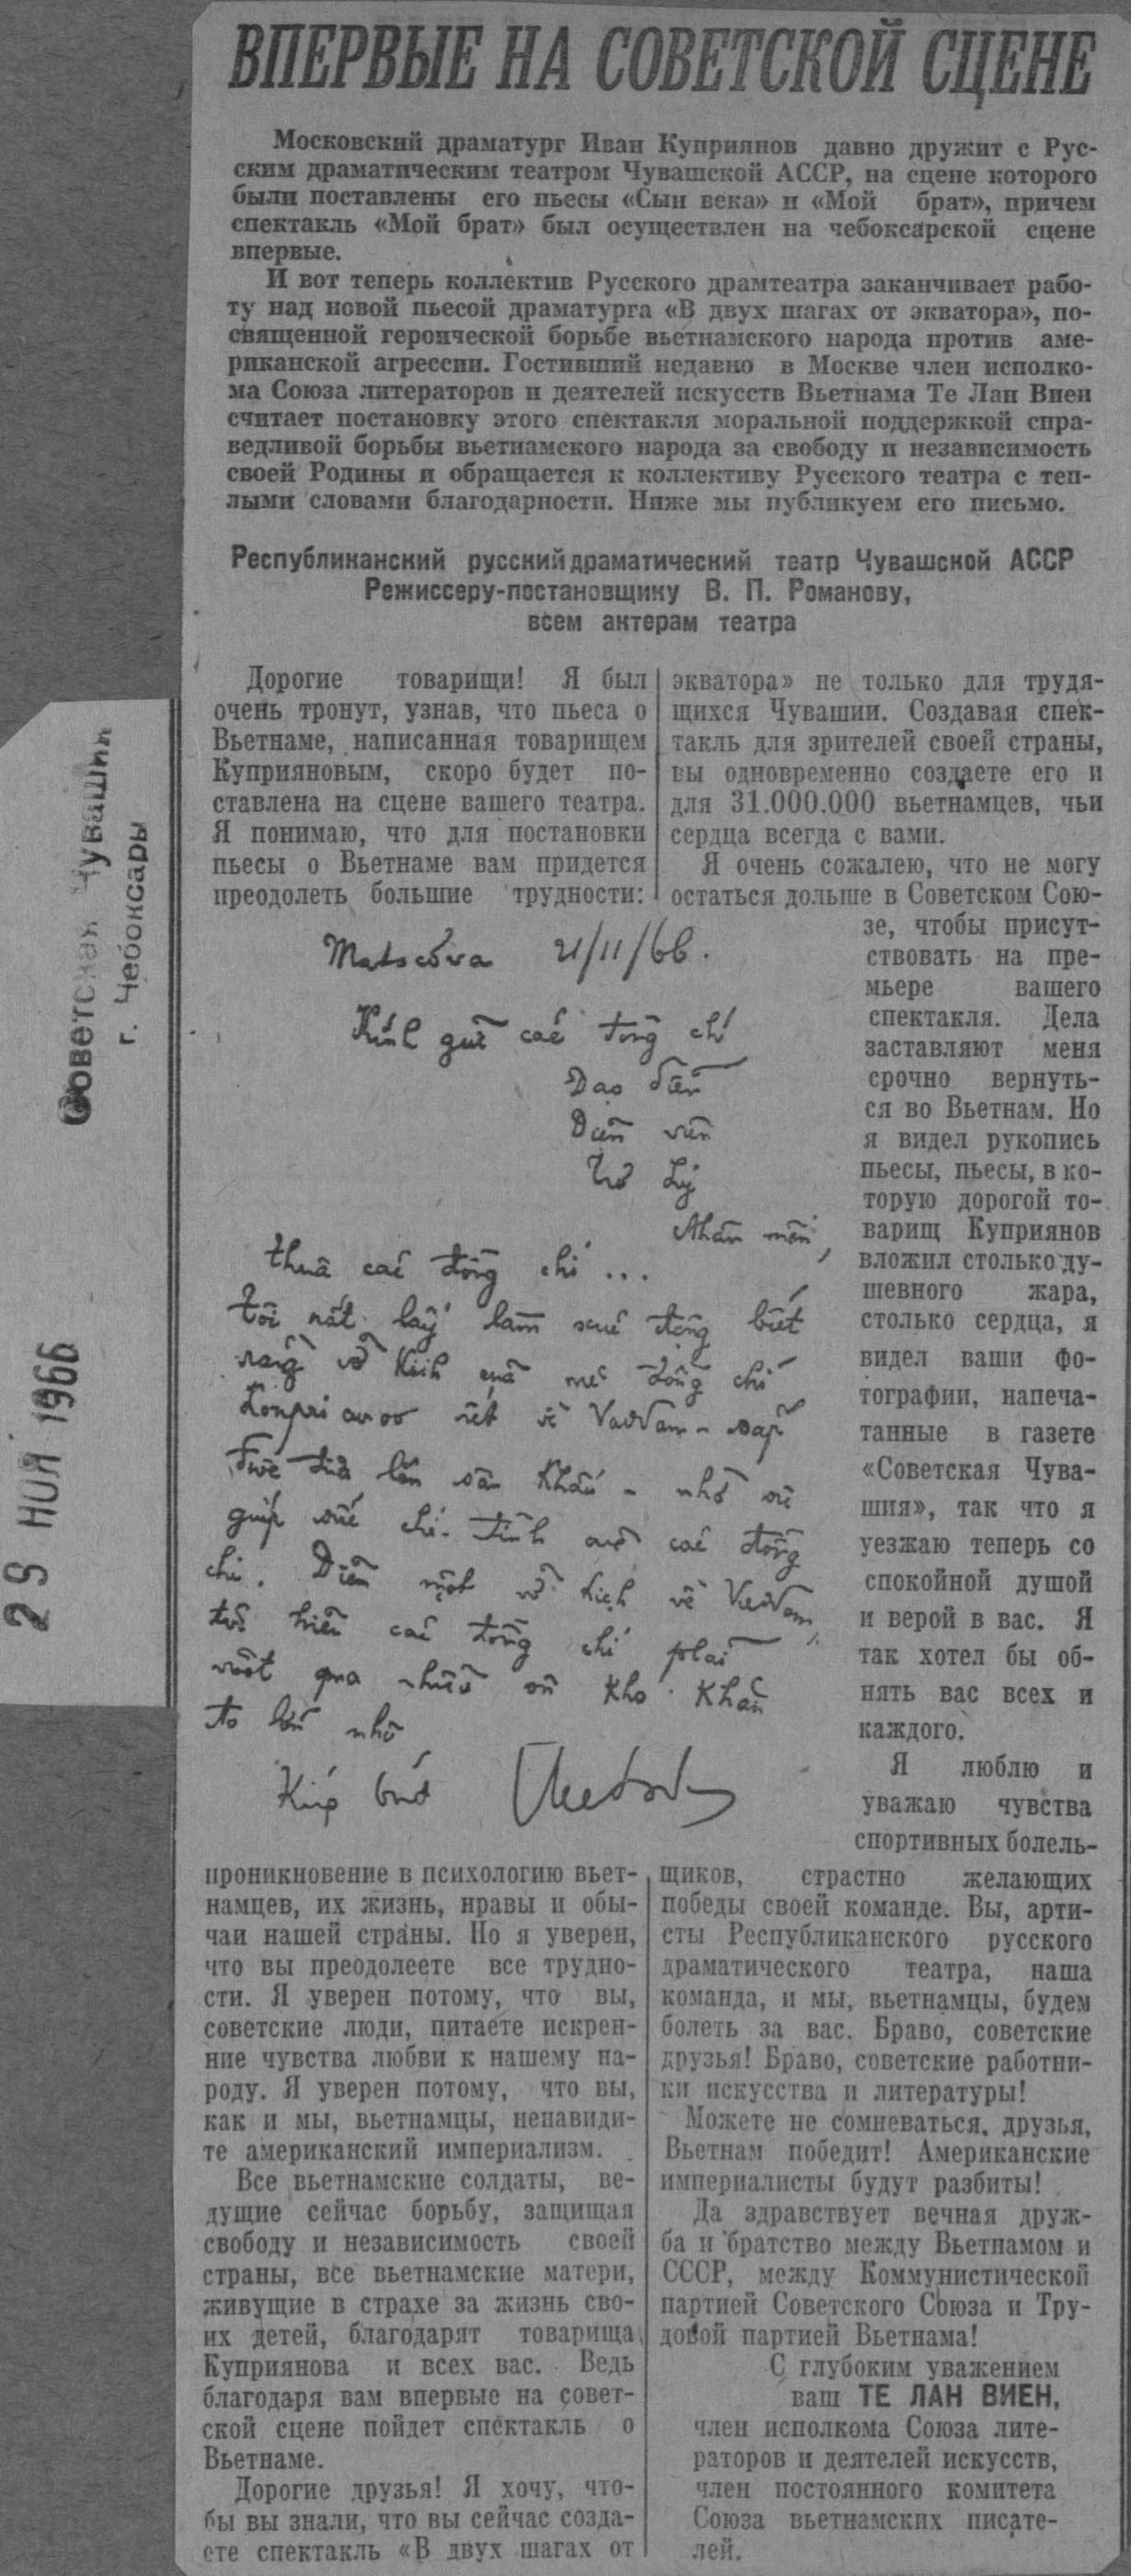 ВПЕРВЫЕ НА СОВЕТСКОЙ СЦЕНЕ
Московский драматург Иван Куприянов давно дружит с Рус-
ским драматическим театром Чувашской АССР, на сцене которого
были поставлены его пьесы «Сын века» и «Мой брат», причем
спектакль «Мой брат» был осуществлен на чебоксарской сцене
впервые.
И вот теперь коллектив Русского драмтеатра заканчивает рабо-
ту над новой пьесой драматурга «В двух шагах от экватора», по-
священной героической борьбе вьетнамского народа против аме-
риканской агрессии. Гостивший недавно в Москве член исполко-
ма Союза литераторов и деятелей искусств Вьетнама Те Лан Виен
считает постановку этого спектакля моральной поддержкой спра-
ведливой борьбы вьетнамского народа за свободу и независимость
своей Родины и обращается к коллективу Русского театра с теп-
лыми словами благодарности. Ниже мы публикуем его письмо.
Республиканский русский драматический театр Чувашской АССР
Режиссеру-постановщику В. П. Романову,
всем актерам театра
Дорогие товарищи! Я был
очень тронут, узнав, что пьеса о
Вьетнаме, написанная товарищем
Куприяновым, скоро будет по-
ставлена на сцене вашего театра.
Я понимаю, что для постановки
пьесы о Вьетнаме вам придется
преодолеть большие трудности:
Matscơva 21/11/66.
Kính gửi các đồng chí
Đạo diễn
Diễn viên
Thưa các đồng chí ...
Tôi rất lấy làm xúc động biết
rằng vở kịch của đồng chí
giúp chí tình của các đồng
chí. Diễn một vở kịch về Việt Nam,
tôi hiểu các đồng chí phải
vượt qua nhiều khó khăn
to lớn như
проникновение в психологию вьет-
намцев, их жизнь, нравы и обы-
чаи нашей страны. Но я уверен,
что вы преодолеете все трудно-
сти. Я уверен потому, что вы,
советские люди, питаете искрен-
ние чувства любви к нашему на-
роду. Я уверен потому, что вы,
как и мы, вьетнамцы, ненавиди-
те американский империализм.
Все вьетнамские солдаты, ве-
дущие сейчас борьбу, защищая
свободу и независимость своей
страны, все вьетнамские матери,
живущие в страхе за жизнь сво-
их детей, благодарят товарища
Куприянова и всех вас. Ведь
благодаря вам впервые на совет-
ской сцене пойдет спектакль о
Вьетнаме.
Дорогие друзья! Я хочу, что-
бы вы знали, что вы сейчас созда-
ете спектакль «В двух шагах от
экватора» не только для трудя-
щихся Чувашии. Создавая спек-
такль для зрителей своей страны,
вы одновременно создаете его и
для 31.000.000 вьетнамцев, чьи
сердца всегда с вами.
Я очень сожалею, что не могу
остаться дольше в Советском Сою-
зе, чтобы присут-
ствовать на пре-
мьере вашего
спектакля. Дела
заставляют меня
срочно вернуть-
ся во Вьетнам. Но
я видел рукопись
пьесы, пьесы, в ко-
торую дорогой то-
варищ Куприянов
вложил столько ду-
шевного жара,
столько сердца, я
видел ваши фо-
тографии, напеча-
танные в газете
«Советская Чува-
шия», так что я
уезжаю теперь со
спокойной душой
и верой в вас. Я
так хотел бы об-
нять вас всех и
каждого.
Я люблю и
уважаю чувства
спортивных болель-
щиков, страстно желающих
победы своей команде. Вы, арти-
сты Республиканского русского
драматического театра, наша
команда, и мы, вьетнамцы, будем
болеть за вас. Браво, советские
друзья! Браво, советские работни-
ки искусства и литературы!
Можете не сомневаться, друзья,
Вьетнам победит! Американские
империалисты будут разбиты!
Да здравствует вечная друж-
ба и братство между Вьетнамом и
СССР, между Коммунистической
партией Советского Союза и Тру-
довой партией Вьетнама!
С глубоким уважением
ваш ТЕ ЛАН ВИЕН,
член исполкома Союза лите-
раторов и деятелей искусств,
член постоянного комитета
Союза вьетнамских писате-
лей.
Советская Чувашия
г. Чебоксары
29 НОЯ 1966